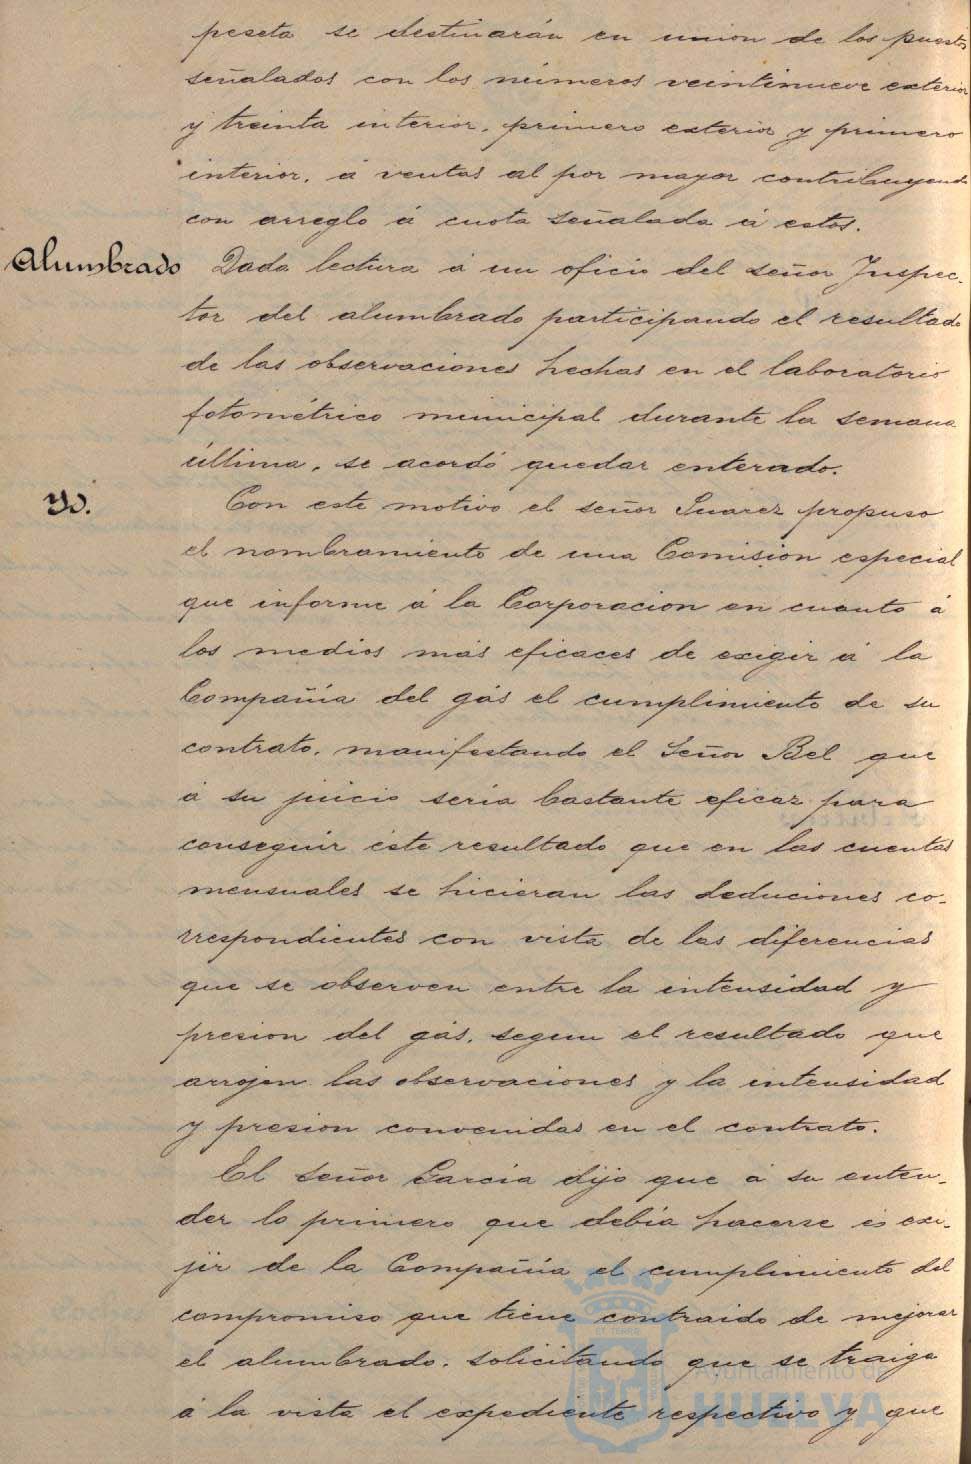 peseta se destinarán en union de los puestos
señalados con los números veintinueve exterior
y treinta interior, primero exterior y primero
interior, á ventas al por mayor contribuyendo
con arreglo á cuota señalada á estos.
Alumbrado Dada lectura á un oficio del señor Inspec-
tor del alumbrado participando el resultado
de las observaciones hechas en el laboratorio
fotométrico municipal durante la semana
última, se acordó quedar enterado.
Yd. Con este motivo el señor Suarez propuso
el nombramiento de una Comision especial
que informe á la Corporacion en cuanto á
los medios más eficaces de exigir á la
Compañía del gás el cumplimiento de su
contrato, manifestando el Señor Bel que
á su juicio seria bastante eficaz para
conseguir éste resultado que en las cuentas
mensuales se hicieran las deduciones co-
rrespondientes con vista de las diferencias
que se observen entre la intensidad y
presion del gás, segun el resultado que
arrojen las observaciones y la intensidad
y presion convenidas en el contrato.
El señor García dijo que á su enten-
der lo primero que debía hacerse és exi-
jir de la Compañía el cumplimiento del
compromiso que tiene contraido de mejorar
el alumbrado, solicitando que se traiga
á la vista el expediente respectivo y que
Ayuntamiento de
HUELVA